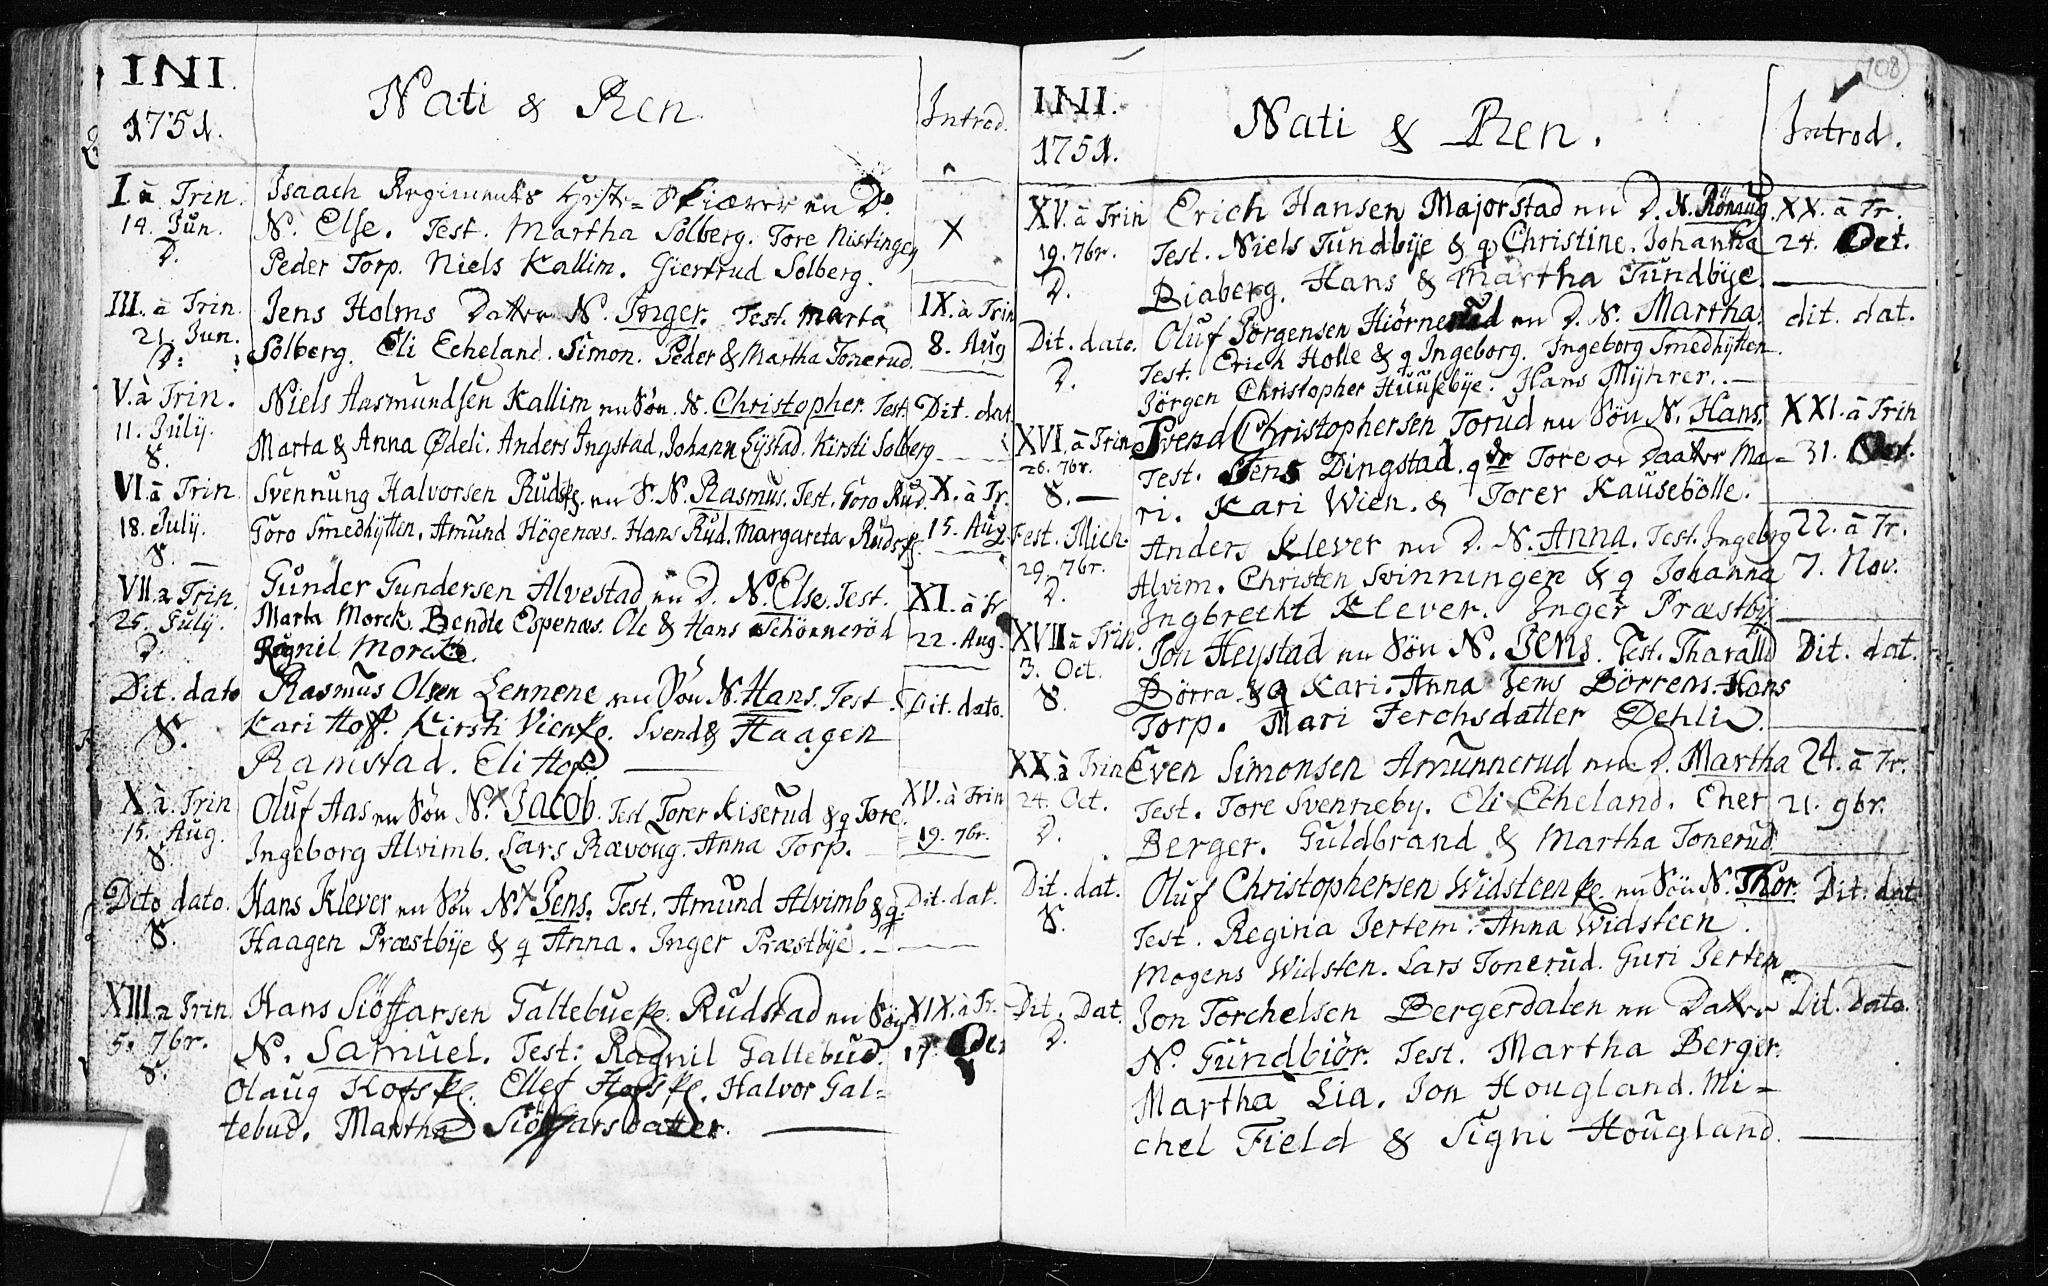 INI.
1751.
Nati & Ren.
Introd.
I à Trin.
14. Jun.
D.
Isaach Regiments - Skiærer en D.
N. Else. Test. Martha Solberg. Tore Nistingen
Peder Torp. Niels Kallim. Giertrud Solberg.
X
III. à Trin.
21. Jun.
D.
Jens Holms Datter N. Inger. Test. Marta
Solberg. Eli Echeland. Simon. Peder & Martha Tonerud.
IX. à Trin
8. Aug
V. à Trin.
11. July.
S.
Niels Aasmundsen Kallim en Søn. N. Christopher. Test.
Marta & Anna Ødeli. Anders Ingstad. Johann Lystad. Kirsti Solberg
Dit. dat.
VI. à Trin.
18. July.
S.
Svennung Halvorsen Rudsk. en S. N. Rasmus. Test. Goro Rud.
Goro Smedhytten. Amund Högenæs. Hans Rud. Margareta Rudsk.
X. à Tr.
15. Aug.
VII à Trin.
25. July.
D.
Gunder Gundersen Alvestad en D. N. Else. Test.
Marta Morck. Bendte Espenæs. Ole & Hans Schönneröd
Ragnil Morck.
XI. à Tr
22. Aug.
Dit. dato
S.
Rasmus Olsen Lennene en Søn N. Hans. Test.
Kari Hoff. Kirsti Viensk. Svend & Haagen
Ramstad. Eli Hof.
Dit. dato.
X à Trin
15. Aug.
S.
Oluf Aas en Søn N. Jacob. Test Torer Kiserud & q Tore.
Ingeborg Alvimb. Lars Rævoug. Anna Torp.
XV. à Trin
19. 7br.
Dito dato.
S.
Hans Klever en Søn N. Jens. Test. Amund Alvimb & q.
Haagen Præstbye & q Anna. Inger Præstbye.
Dit. dat.
XIII à Trin.
5. 7br.
S.
Hans Siöffarsen Galtebuek. Rudstad en Søn
N. Samuel. Test: Ragnil Galtebud.
Olaug Hofsk. Ellef Hofsk. Halvor Gal=
tebud. Martha Siöffarsdatter.
XIX. à Tr.
17. Oct
108
INI.
1751.
Nati & Ren.
Introd.
XV. à Trin
19. 7br.
D.
Erich Hansen Majorstad en D. N. Rönaug.
Test. Niels Tundbye & q Christine. Johanna
Biaberg. Hans & Martha Tundbye.
XX. à Tr.
24. Oct.
Dit. dato.
D.
Oluf Jörgensen Hiörnerud en D. N. Martha.
Test. Erich Holle & q Ingeborg. Ingeborg Smedhytten.
Jörgen Christopher Huusebye. Hans Myhrer.
dit. dat.
XVI. à Trin
26. 7br.
S.
Svend Christophersen Torud en Søn N. Hans.
Test. Jens Dingstad. q Tore Daatter Ma=
ri. Kari Wien. & Torer Kausebölle.
XXI. à Trin
31. Oct.
Fest. Mich.
29. 7br.
D.
Anders Klever en D. N. Anna. Test. Ingeborg
Alvim. Christen Svinningen & q Johanna
Ingbrecht Klever. Inger Præstby.
22. à Tr.
7. Nov.
XVII à Trin.
3. Oct.
S.
Jon Heystad en Søn N. Jens. Test. Tharald
Börra & q Kari. Anna Jens Börrens. Hans
Torp. Mari Ferchsdatter Dehli.
Dit. dat.
XX. à Trin
24. Oct.
D.
Even Simonsen Amunnerud en D. Martha
Test. Tore Svenneby. Eli Echeland. Ener
Berger. Guldbrand & Martha Tonerud
24. à Tr.
21. 9br.
Dit. dat.
S.
Oluf Christophersen Widsteensk. en Søn N. Thor.
Test. Regina Jertem. Anna Widsteen.
Mogens Widsten. Lars Tonerud. Guri Jerten
Dit. dat
Dit. Dat.
D.
Jon Torchelsen Bergerdalen en Datter
N. Gundbiör. Test. Martha Berger.
Martha Lia. Jon Hougland. Mi=
chel Field & Signi Hougland.
Dit. Dato.